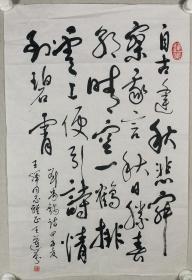 自古逢秋悲寂
寥我言秋日勝春
朝晴空一鶴排
雲上便引詩情
到碧霄
劉禹錫詩
同志